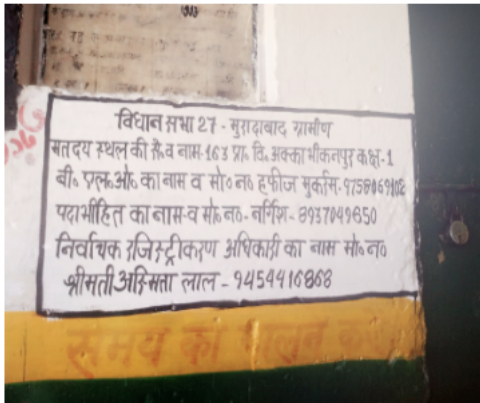 विधान सभा 27 - मुरादाबाद ग्रामीण
मतदय स्थल की सं० व नाम-163 प्रा० वि० अक्का भीकनपुर कक्ष-1
बी० एल० ओ० का नाम व मो० न० हफीज मुकर्रम-9758069102
पदाभीहित का नाम-व मो० न०- नर्गिश-8937049650
निर्वाचक रजिस्ट्रीकरण अधिकारी का नाम मो० न०
श्रीमती अस्मिता लाल-9454416868
समय का पालन करें